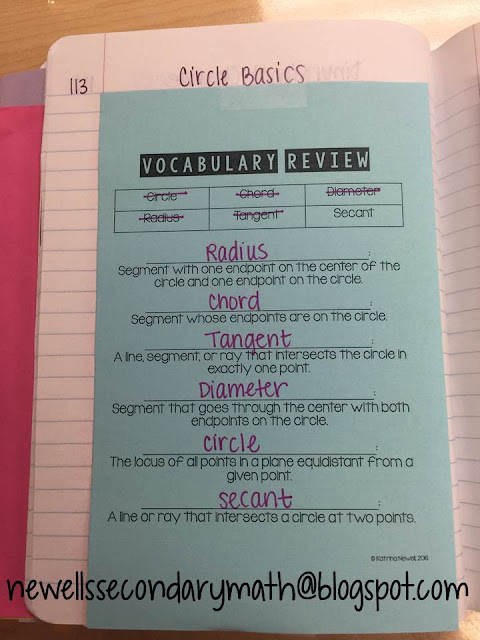 Circle Basics
113
VOCABULARY REVIEW
Circle Chord Diameter
Radius Tangent Secant
Radius:
Segment with one endpoint on the center of the
circle and one endpoint on the circle.
chord:
Segment whose endpoints are on the circle.
Tangent:
A line, segment, or ray that intersects the circle in
exactly one point.
Diameter:
Segment that goes through the center with both
endpoints on the circle.
circle:
The locus of all points in a plane equidistant from a
given point.
secant:
A line or ray that intersects a circle at two points.
© Katrina Newell, 2016
newellssecondarymath@blogspot.com